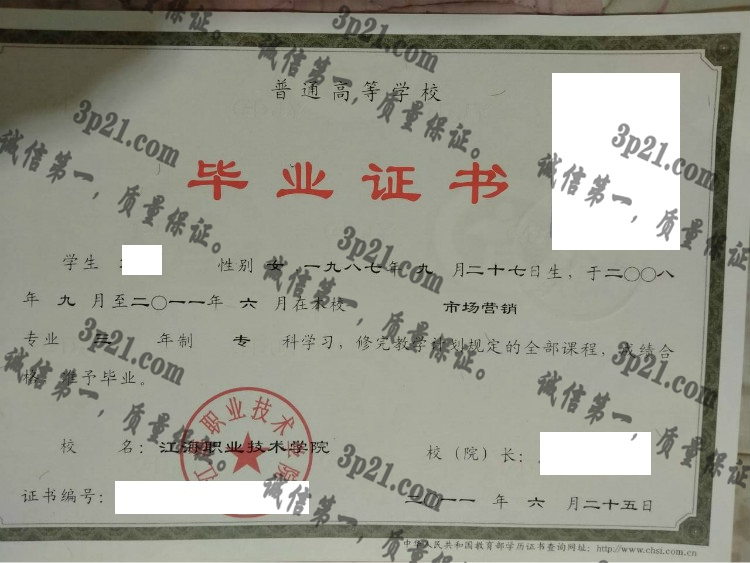 普通高等学校
毕业证书
学生 性别 女 一九八七年 九 月二十七日生，于二〇〇八
年 九 月至二〇一一年 六 月在本校 市场营销
专业 三 年制 专 科学习，修完教学计划规定的全部课程，成绩合
格，准予毕业。
校 名：江海职业技术学院
校（院）长：
证书编号：
二〇一一 年 六 月二十五日
中华人民共和国教育部学历证书查询网址：http://www.chsi.com.cn
江海职业技术学院
3p21.com
诚信第一，质量保证。
3p21.com
诚信第一，质量保证。
3p21.com
诚信第一，质量保证。
3p21.com
诚信第一，质量保证。
3p21.com
诚信第一，质量保证。
3p21.com
诚信第一，质量保证。
3p21.com
诚信第一，质量保证。
3p21.com
诚信第一，质量保证。